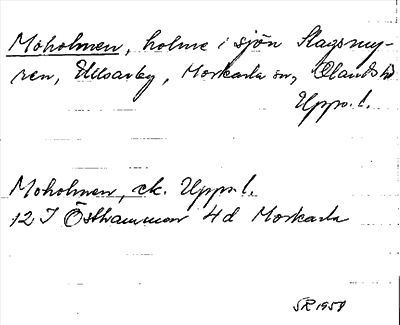 Moholmen, holme i sjön Slagsmy-
ren, Ullsarby, Morkarla sn, Olands hd
Upps. l.
Moholmen, ek. Upps. l.
12 I Östhammar 4 d Morkarla
SR 1958